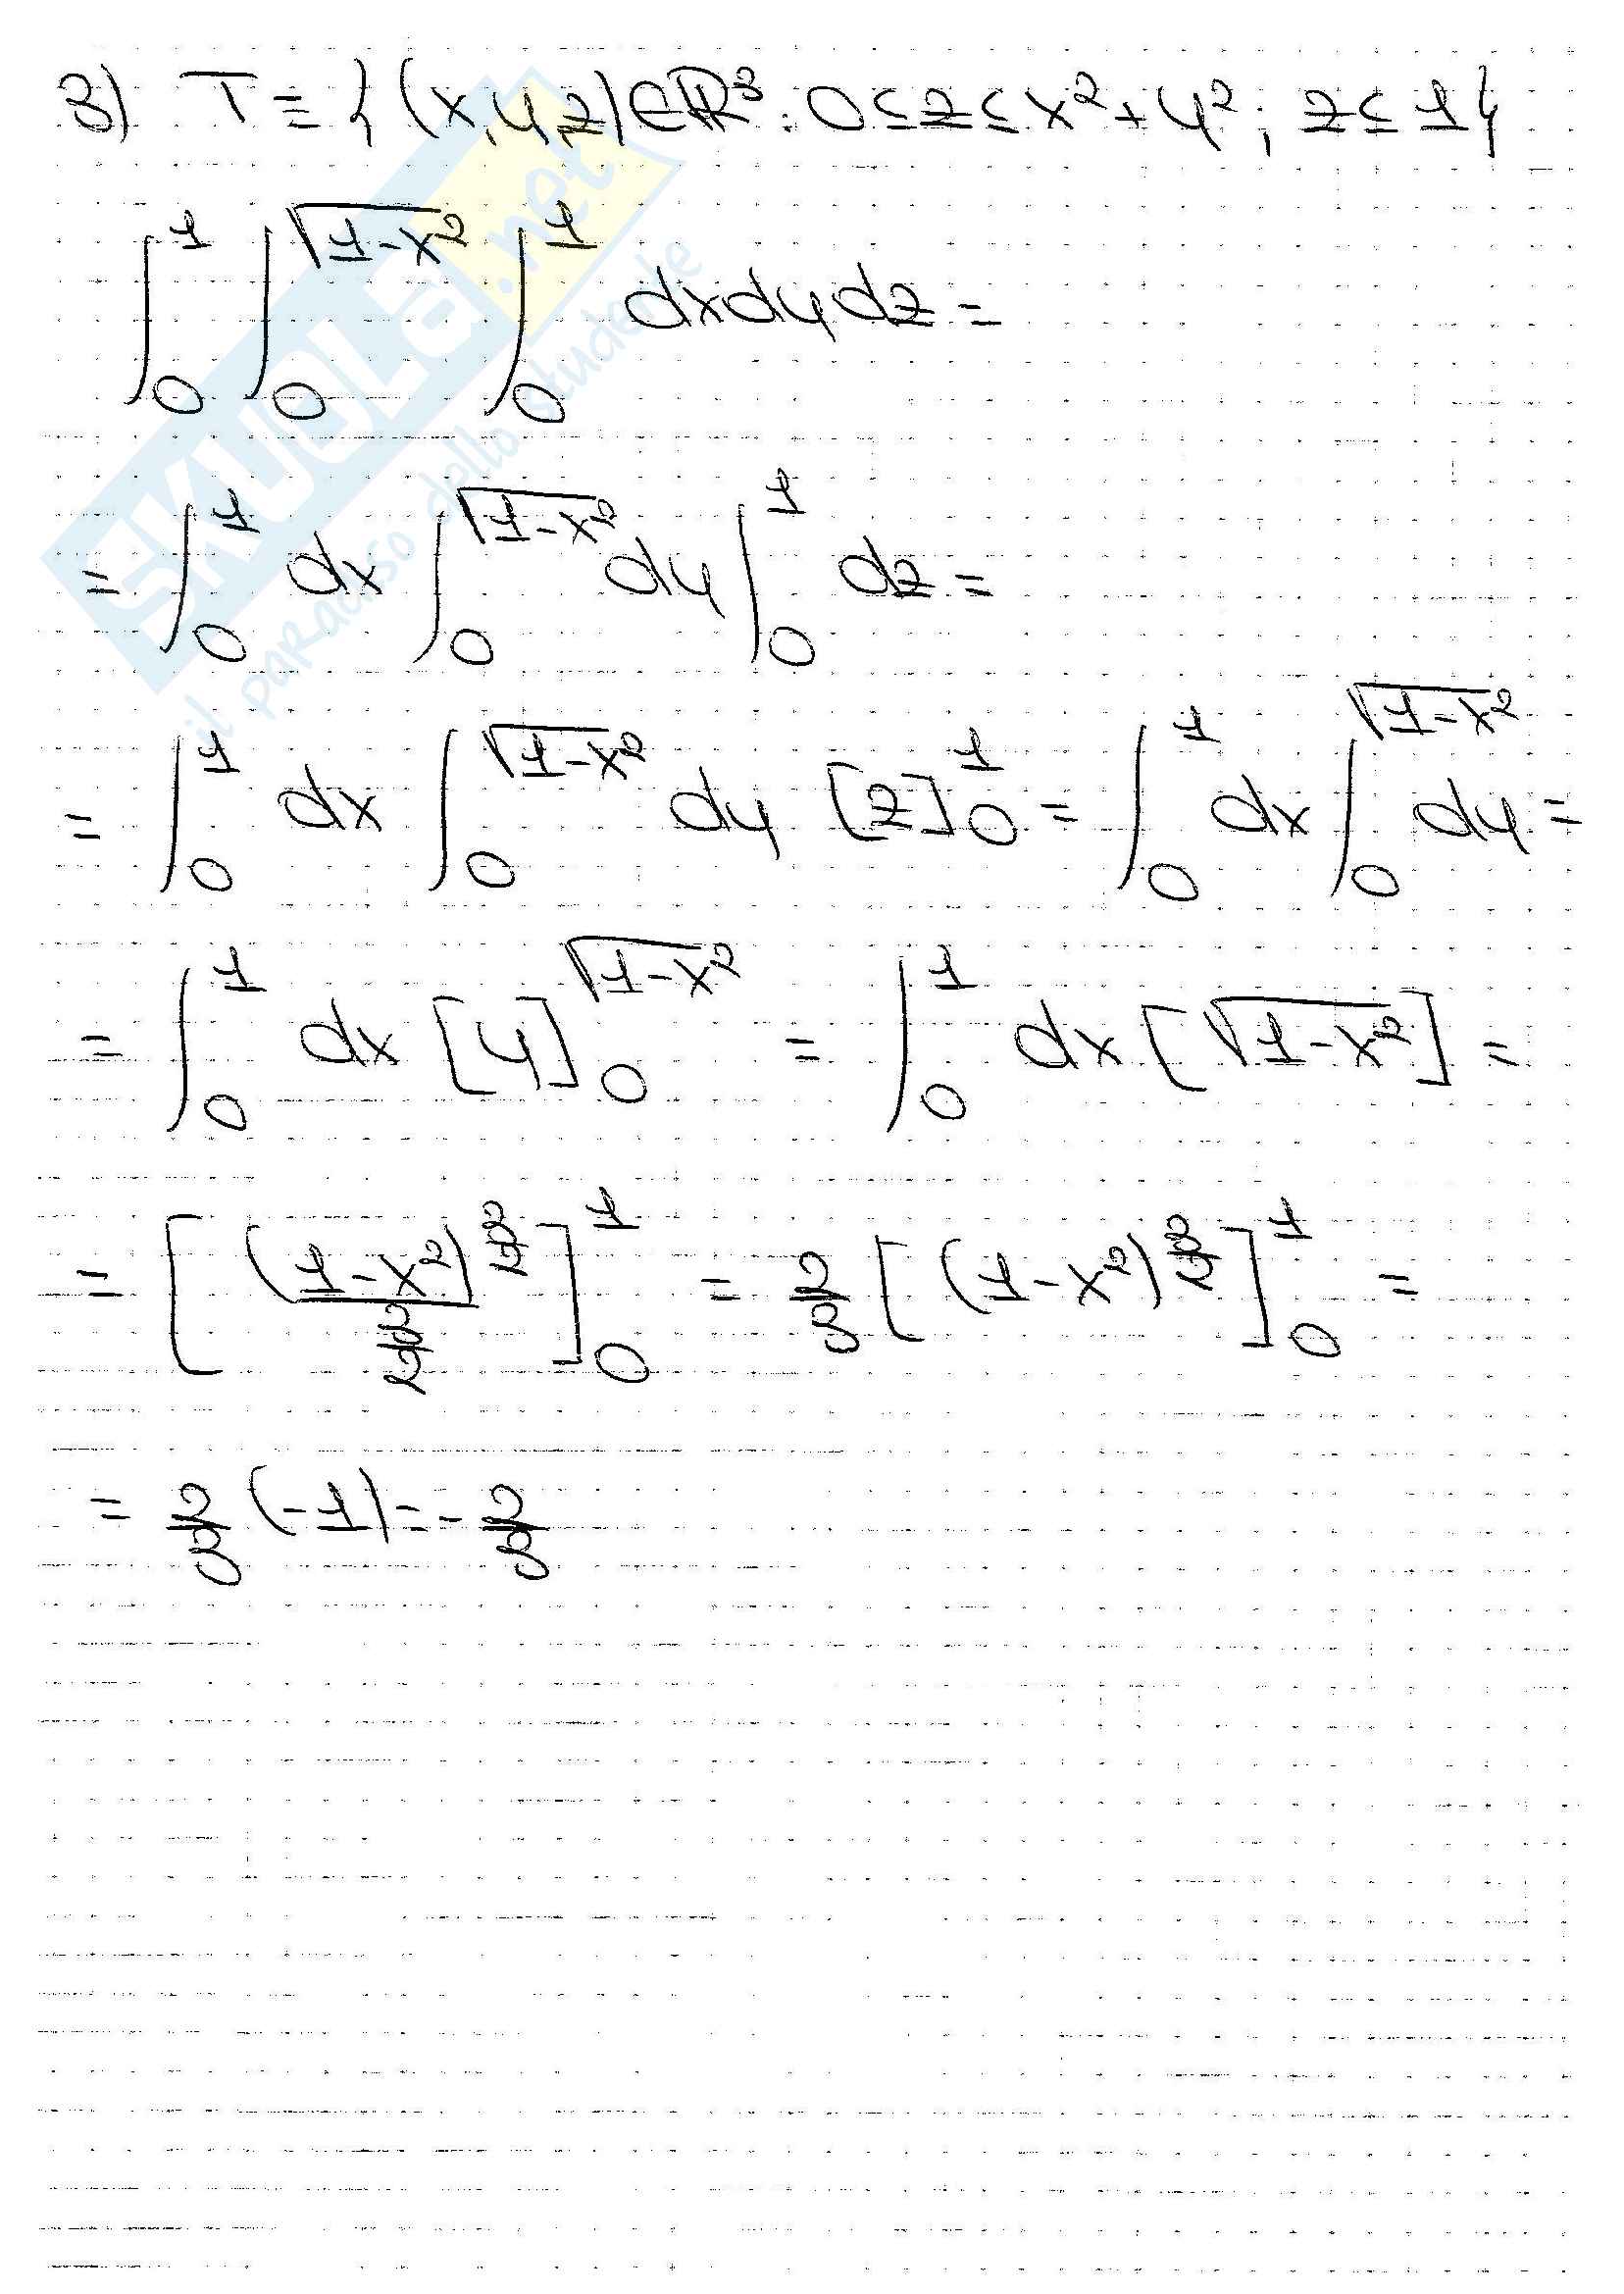 3) T ≡ {(x,y,z)∈ℝ³: 0≤z≤x²+y²; z≤1}
∫₀¹ ∫₀^√(1-x²) ∫₀¹ dxdydz =
= ∫₀¹ dx ∫₀^√(1-x²) dy ∫₀¹ dz =
= ∫₀¹ dx ∫₀^√(1-x²) dy [z]₀¹ = ∫₀¹ dx ∫₀^√(1-x²) dy =
= ∫₀¹ dx [y]₀^√(1-x²) = ∫₀¹ dx [√(1-x²)] =
= [(1-x²)^(3/2) / (3/2)]₀¹ = 2/3 [(1-x²)^(3/2)]₀¹ =
= 2/3 (-1) = -2/3
SKUOLa.net
il paradiso dello studente